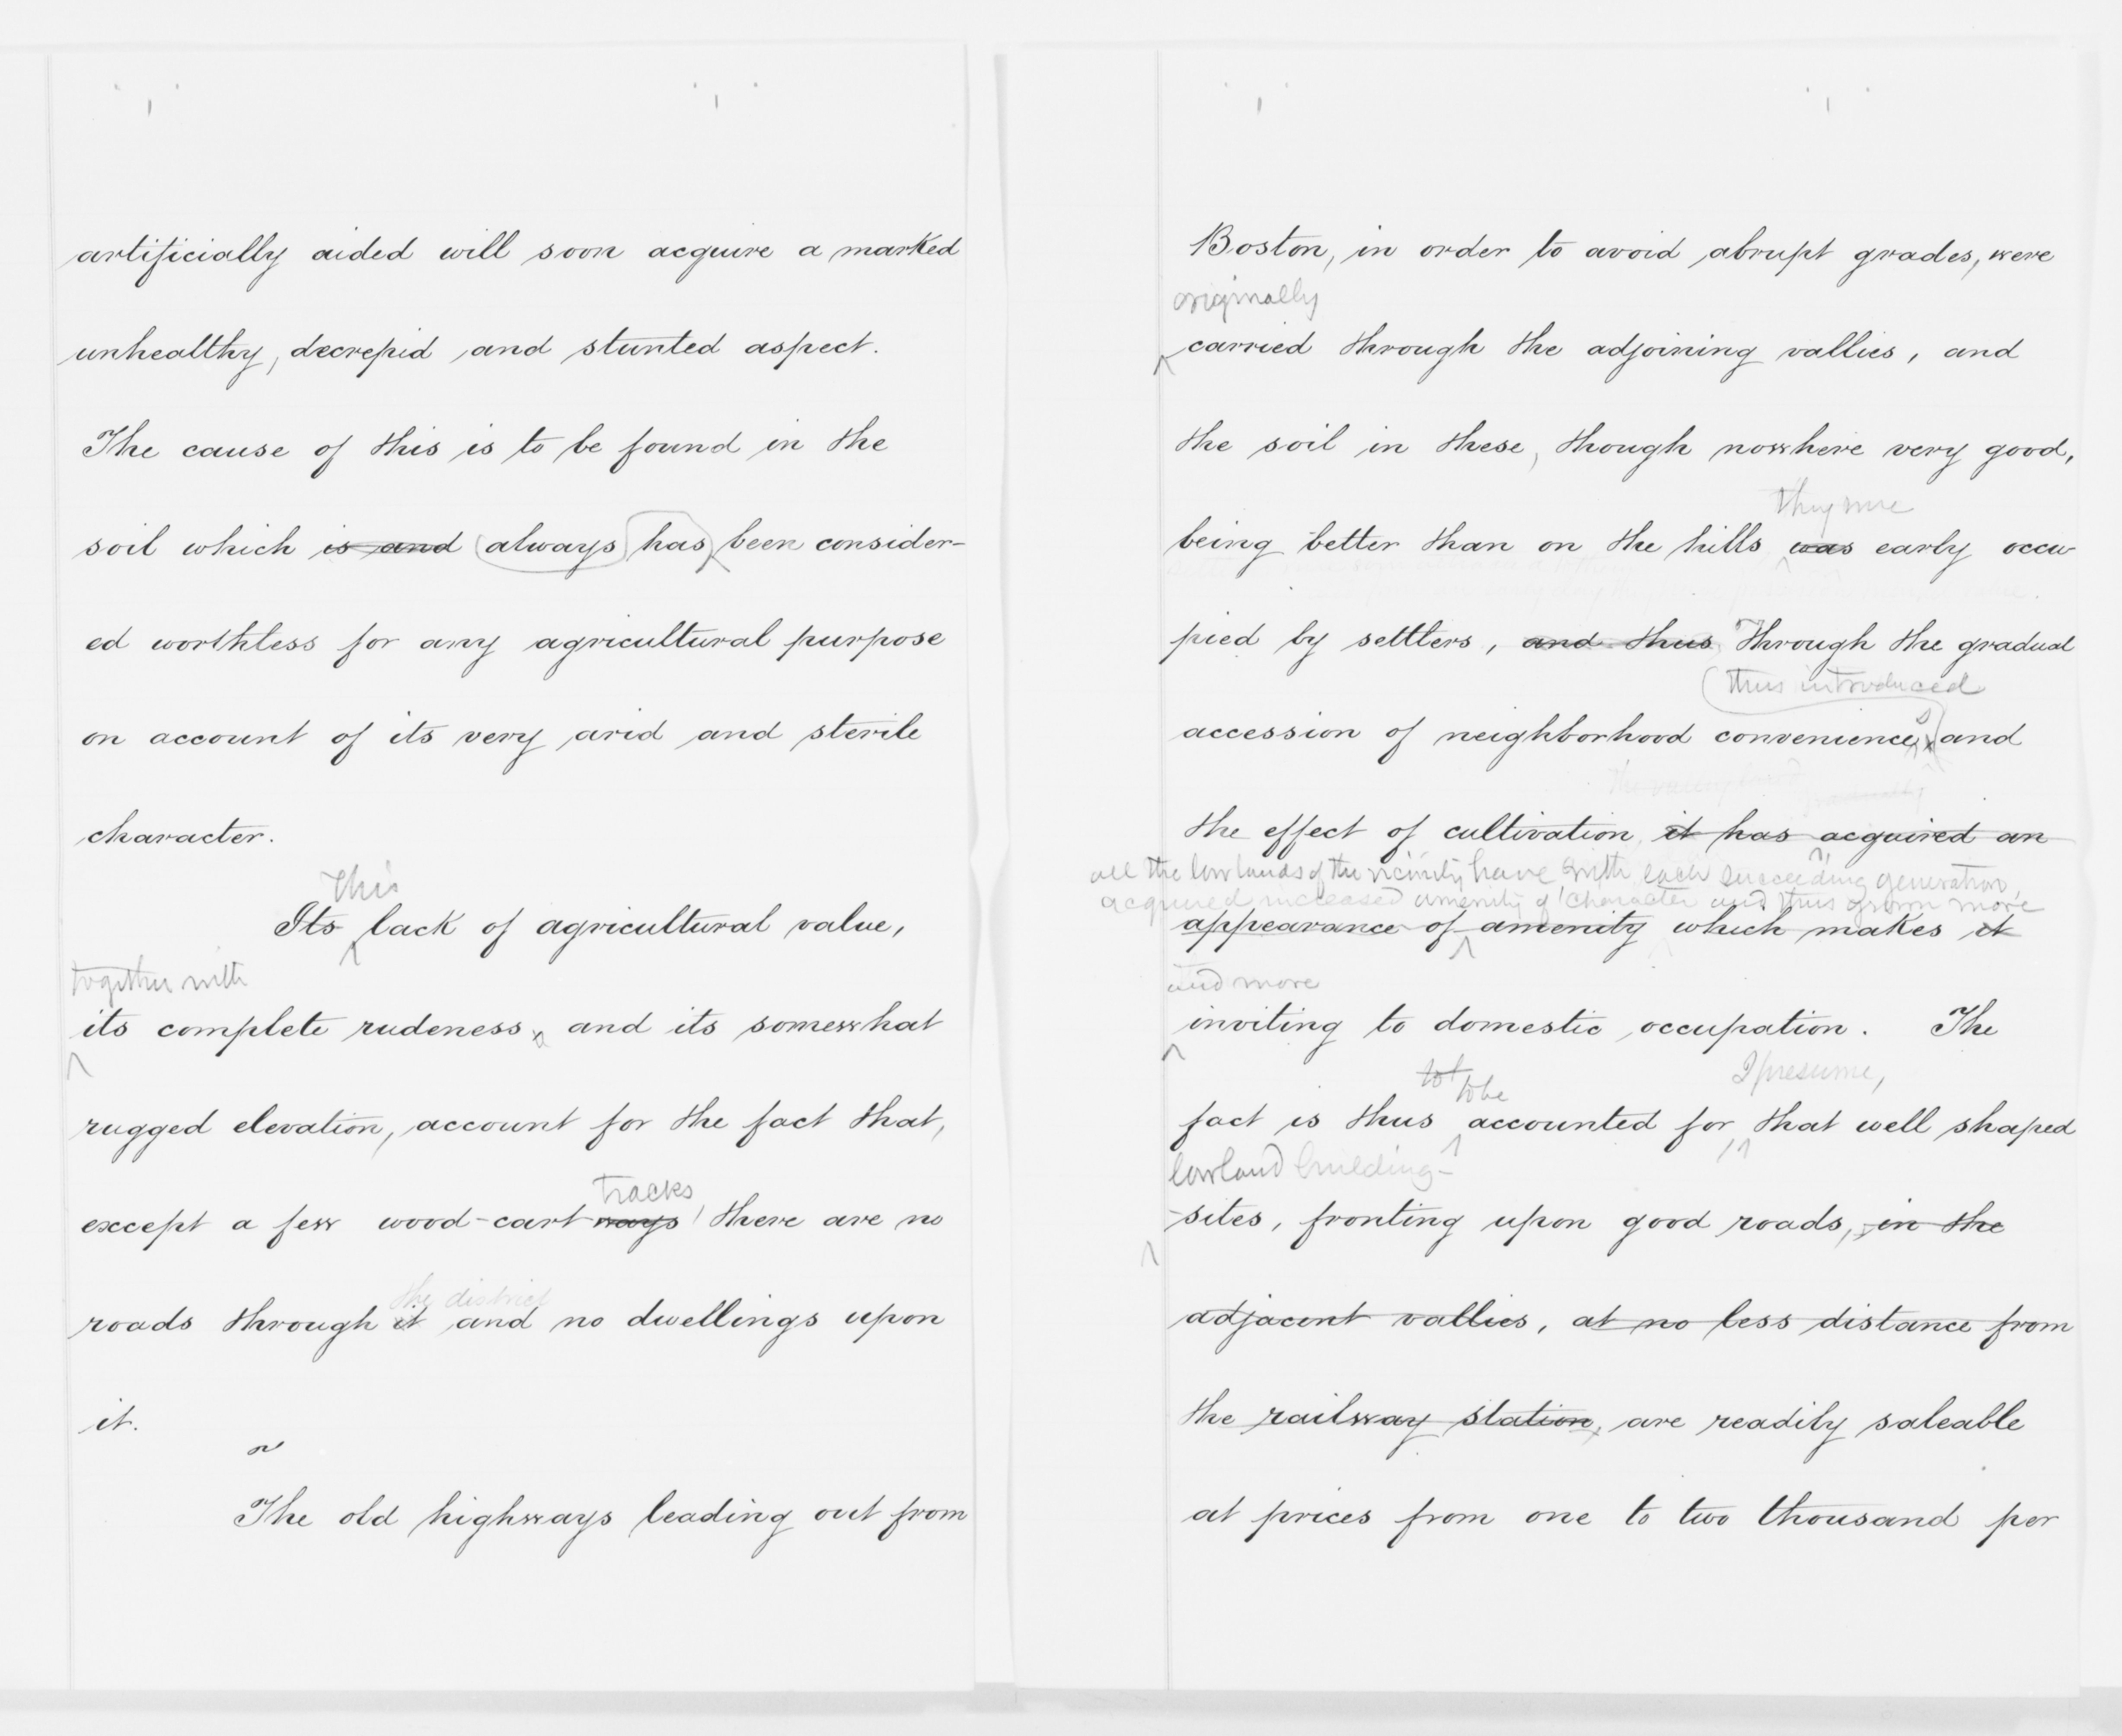 artificially aided will soon acquire a marked
unhealthy, decrepid and stunted aspect.
The cause of this is to be found in the
soil which is and always has been consider-
ed worthless for any agricultural purpose
on account of its very arid and sterile
character.
This
Its lack of agricultural value,
together with
its complete rudeness, and its somewhat
rugged elevation, account for the fact that,
tracks
except a few wood-cart ways there are no
the district
roads through it and no dwellings upon
it.
The old highways leading out from
Boston, in order to avoid abrupt grades, were
originally
carried through the adjoining vallies, and
the soil in these, though nowhere very good,
they were
being better than on the hills was early occu-
pied by settlers, and thus Through the gradual
thus introduced
accession of neighborhood conveniences and
the effect of cultivation, it has acquired an
all the low lands of the vicinity have with each succeeding generation,
acquired increased amenity of character and thus grown more
appearance of amenity which makes it
and more
inviting to domestic occupation. The
to to be I presume,
fact is thus accounted for, that well shaped
lowland building-
-sites, fronting upon good roads, in the
adjacent vallies, at no less distance from
the railway station, are readily saleable
at prices from one to two thousand per